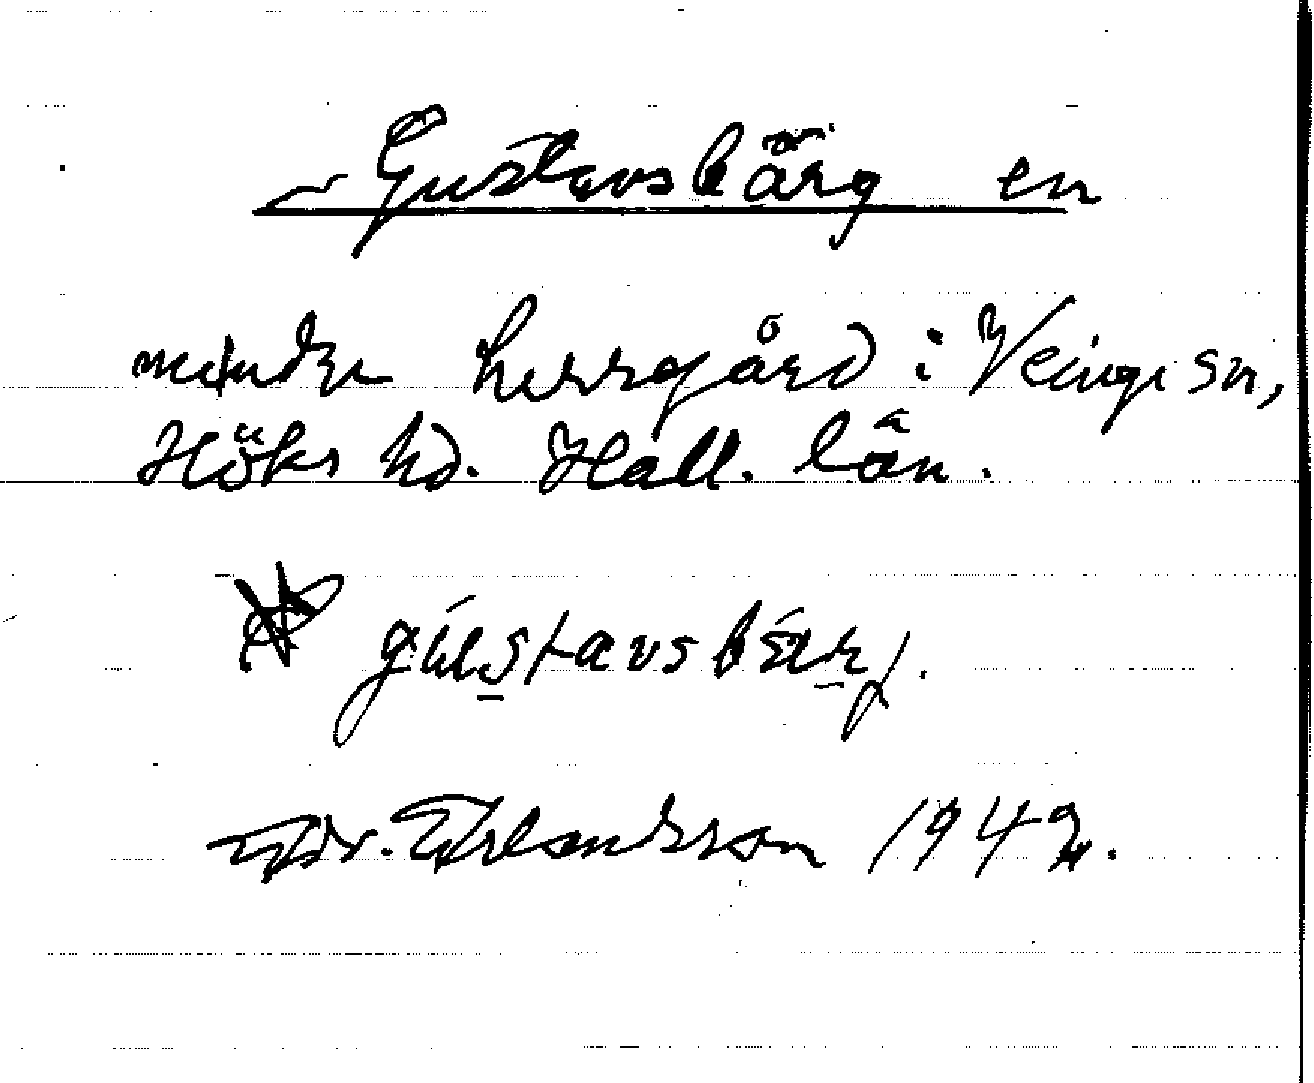 ~ Gustavsbärg en
mindre herrgård i Veinge sn,
Höks hd. Hall. län.
gústavsbérj.
1942.